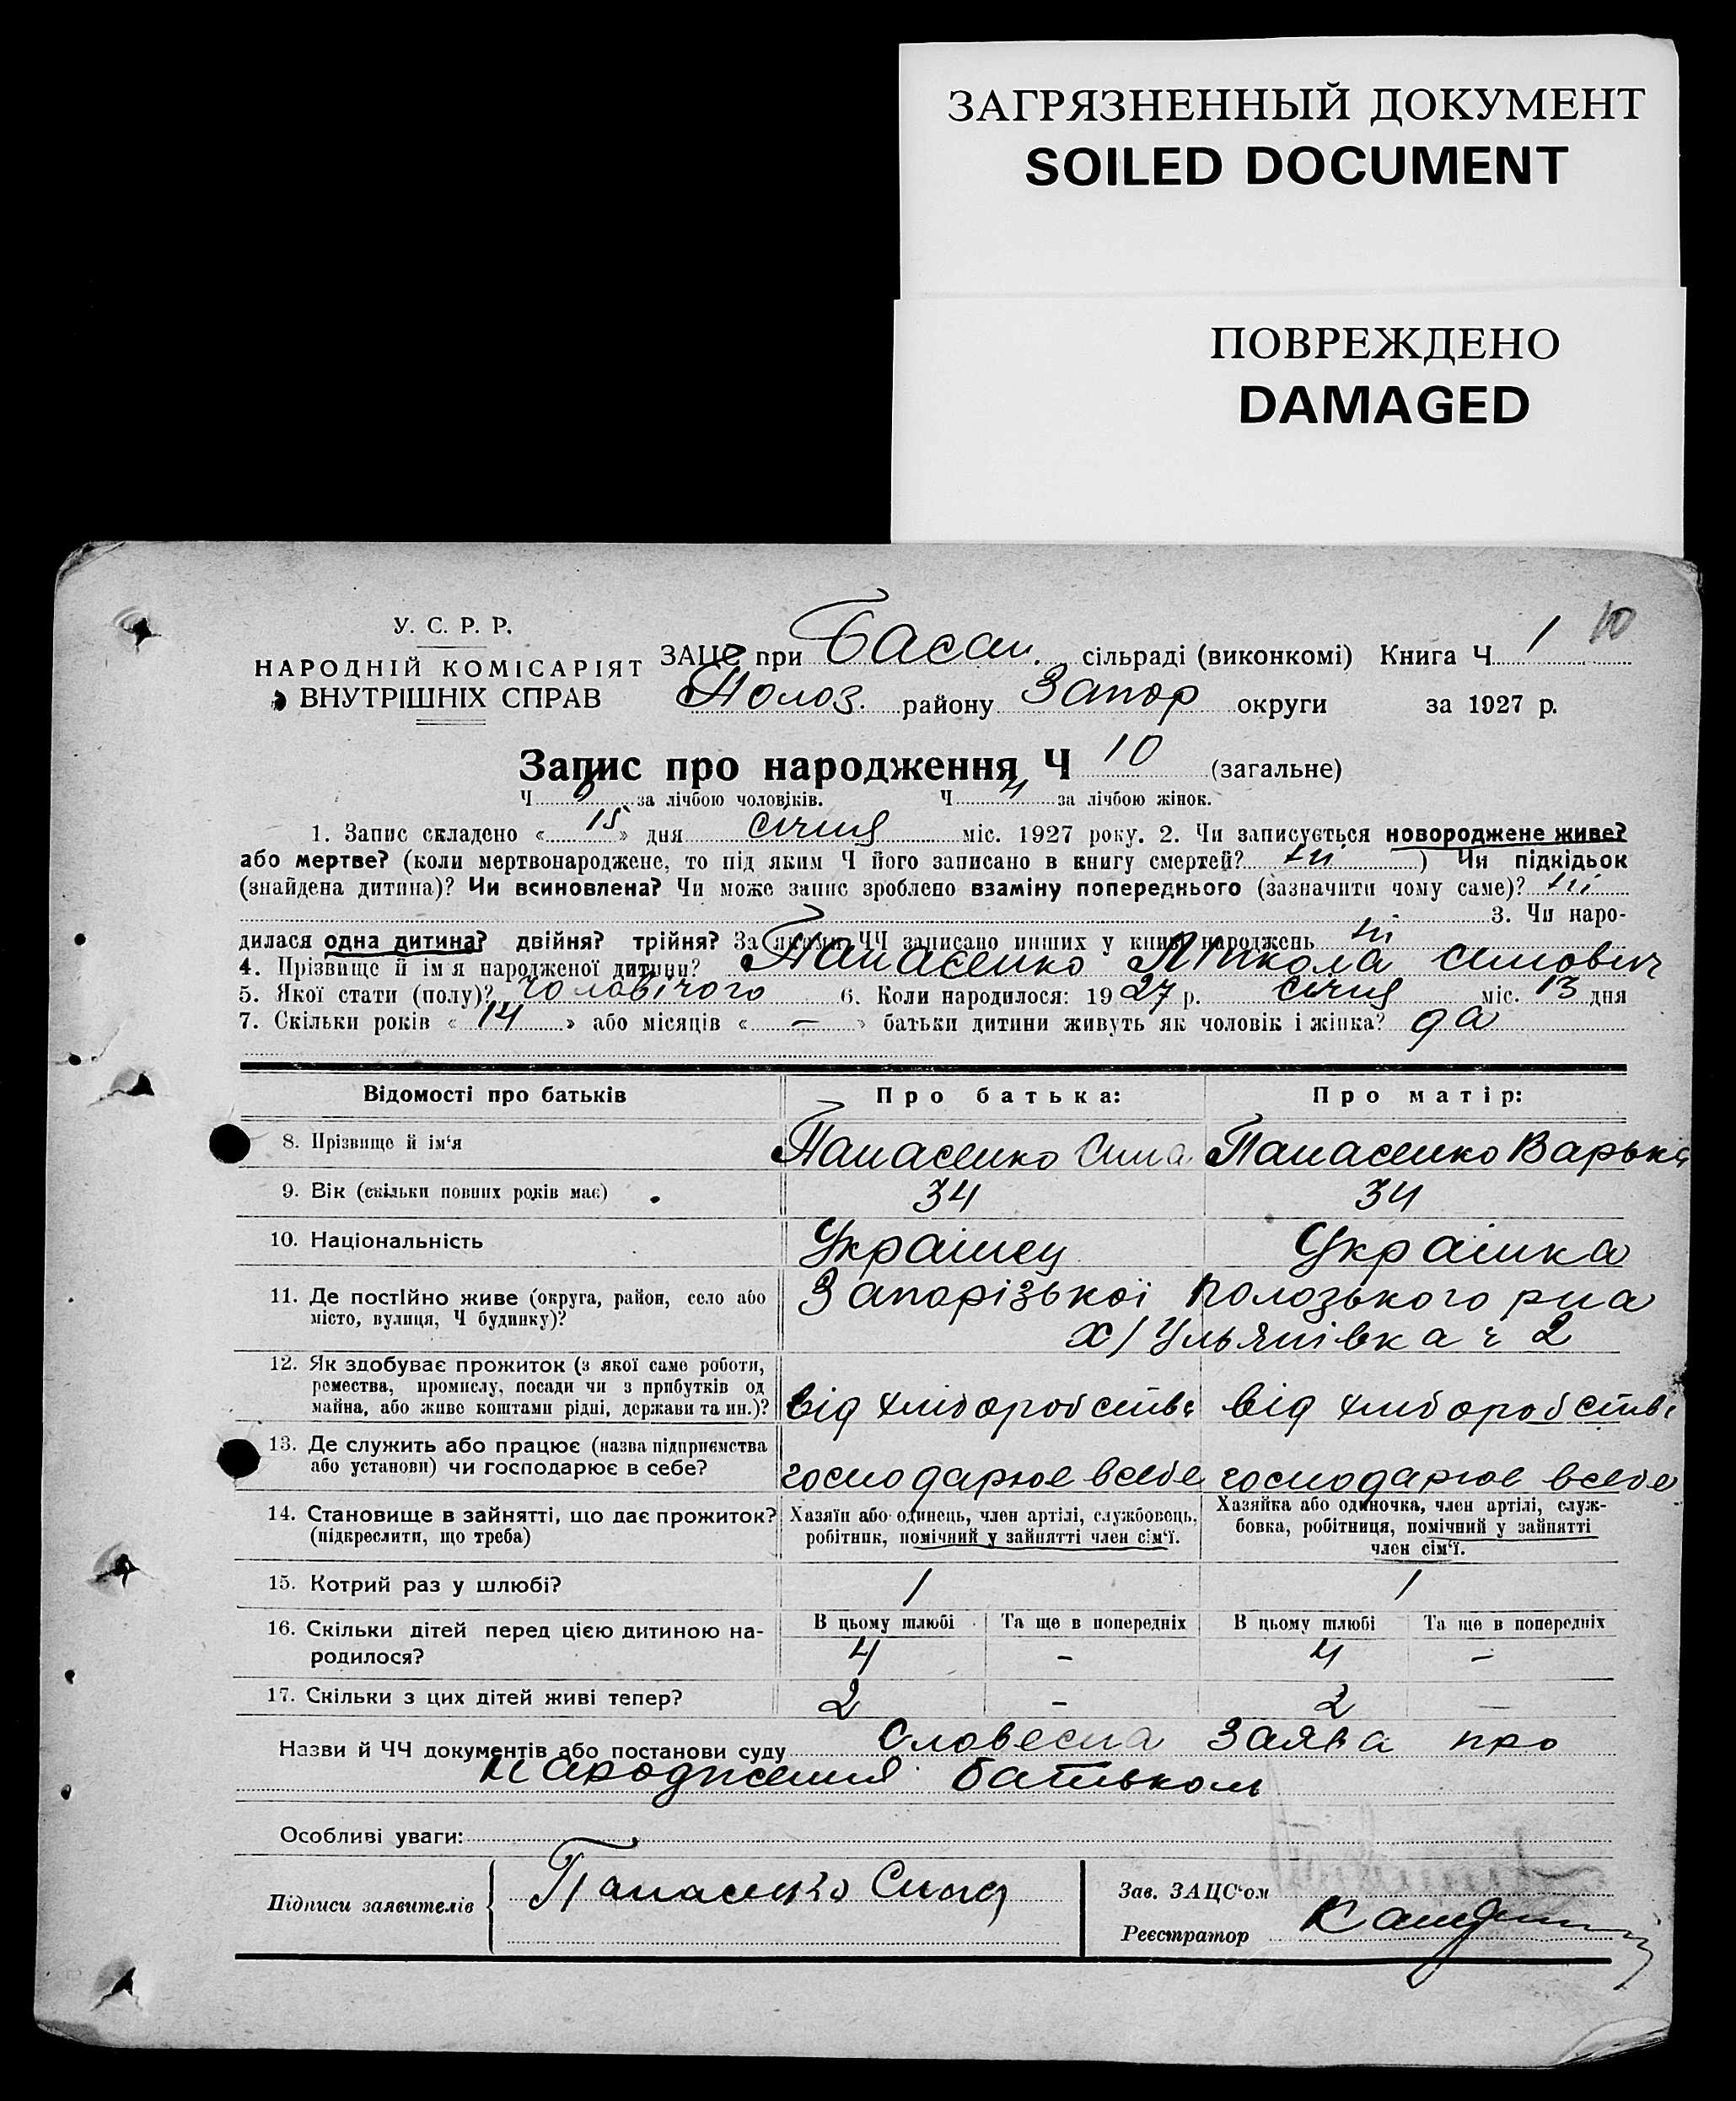 ЗАГРЯЗНЕННЫЙ ДОКУМЕНТ
SOILED DOCUMENT
ПОВРЕЖДЕНО
DAMAGED
10
У. С. Р. Р.
НАРОДНІЙ КОМІСАРІЯТ
ВНУТРІШНІХ СПРАВ
ЗАЦС при Басан. сільраді (виконкомі) Книга Ч 1
Полоз. району Запор округи за 1927 р.
Запис про народження Ч 10 (загальне)
Ч за лічбою чоловіків. Ч 4 за лічбою жінок.
1. Запис складено « 15 » дня січня міс. 1927 року. 2. Чи записується новороджене живе?
або мертве? (коли мертвонароджене, то під яким Ч його записано в книгу смертей? ні ) Чи підкідьок
(знайдена дитина)? Чи всиновлена? Чи може запис зроблено взаміну попереднього (зазначити чому саме)? ні
3. Чи наро-
дилася одна дитина? двійня? трійня? За якими ЧЧ записано инших у книзі народжень ні
4. Прізвище й ім'я народженої дитини? Панасенко Микола
5. Якої стати (полу)? чоловічого 6. Коли народилося: 1927 р. січня міс. 13 дня
7. Скільки років « 14 » або місяців « — » батьки дитини живуть як чоловік і жінка? да
Відомості про батьків Про батька: Про матір:
8. Прізвище й ім'я Панасенко Панасенко Варька
9. Вік (скільки повних років має) 34 34
10. Національність Українец Українка
11. Де постійно живе (округа, район, село або Запорізької Полозького рна
місто, вулиця, Ч будинку)? х/Ульянівка ч 2
12. Як здобуває прожиток (з якої саме роботи,
ремества, промислу, посади чи з прибутків од
майна, або живе коштами рідні, держави та ин.)? від хліборобства від хліборобства
13. Де служить або працює (назва підприємства
або установи) чи господарює в себе? господарює всебе господарює всебе
14. Становище в зайнятті, що дає прожиток? Хазяїн або одинець, член артілі, службовець, Хазяйка або одиночка, член артілі, служ-
(підкреслити, що треба) робітник, помічний у зайнятті член сім'ї. бовка, робітниця, помічний у зайнятті
член сім'ї.
15. Котрий раз у шлюбі? 1 1
16. Скільки дітей перед цією дитиною на- В цьому шлюбі Та ще в попередніх В цьому шлюбі Та ще в попередніх
родилося? 4 – 4 –
17. Скільки з цих дітей живі тепер? 2 – 2 —
Назви й ЧЧ документів або постанови суду Словесна заява про
народження батьком
Особливі уваги:
Підписи заявителів Панасенко
Зав. ЗАЦС'ом
Реєстратор